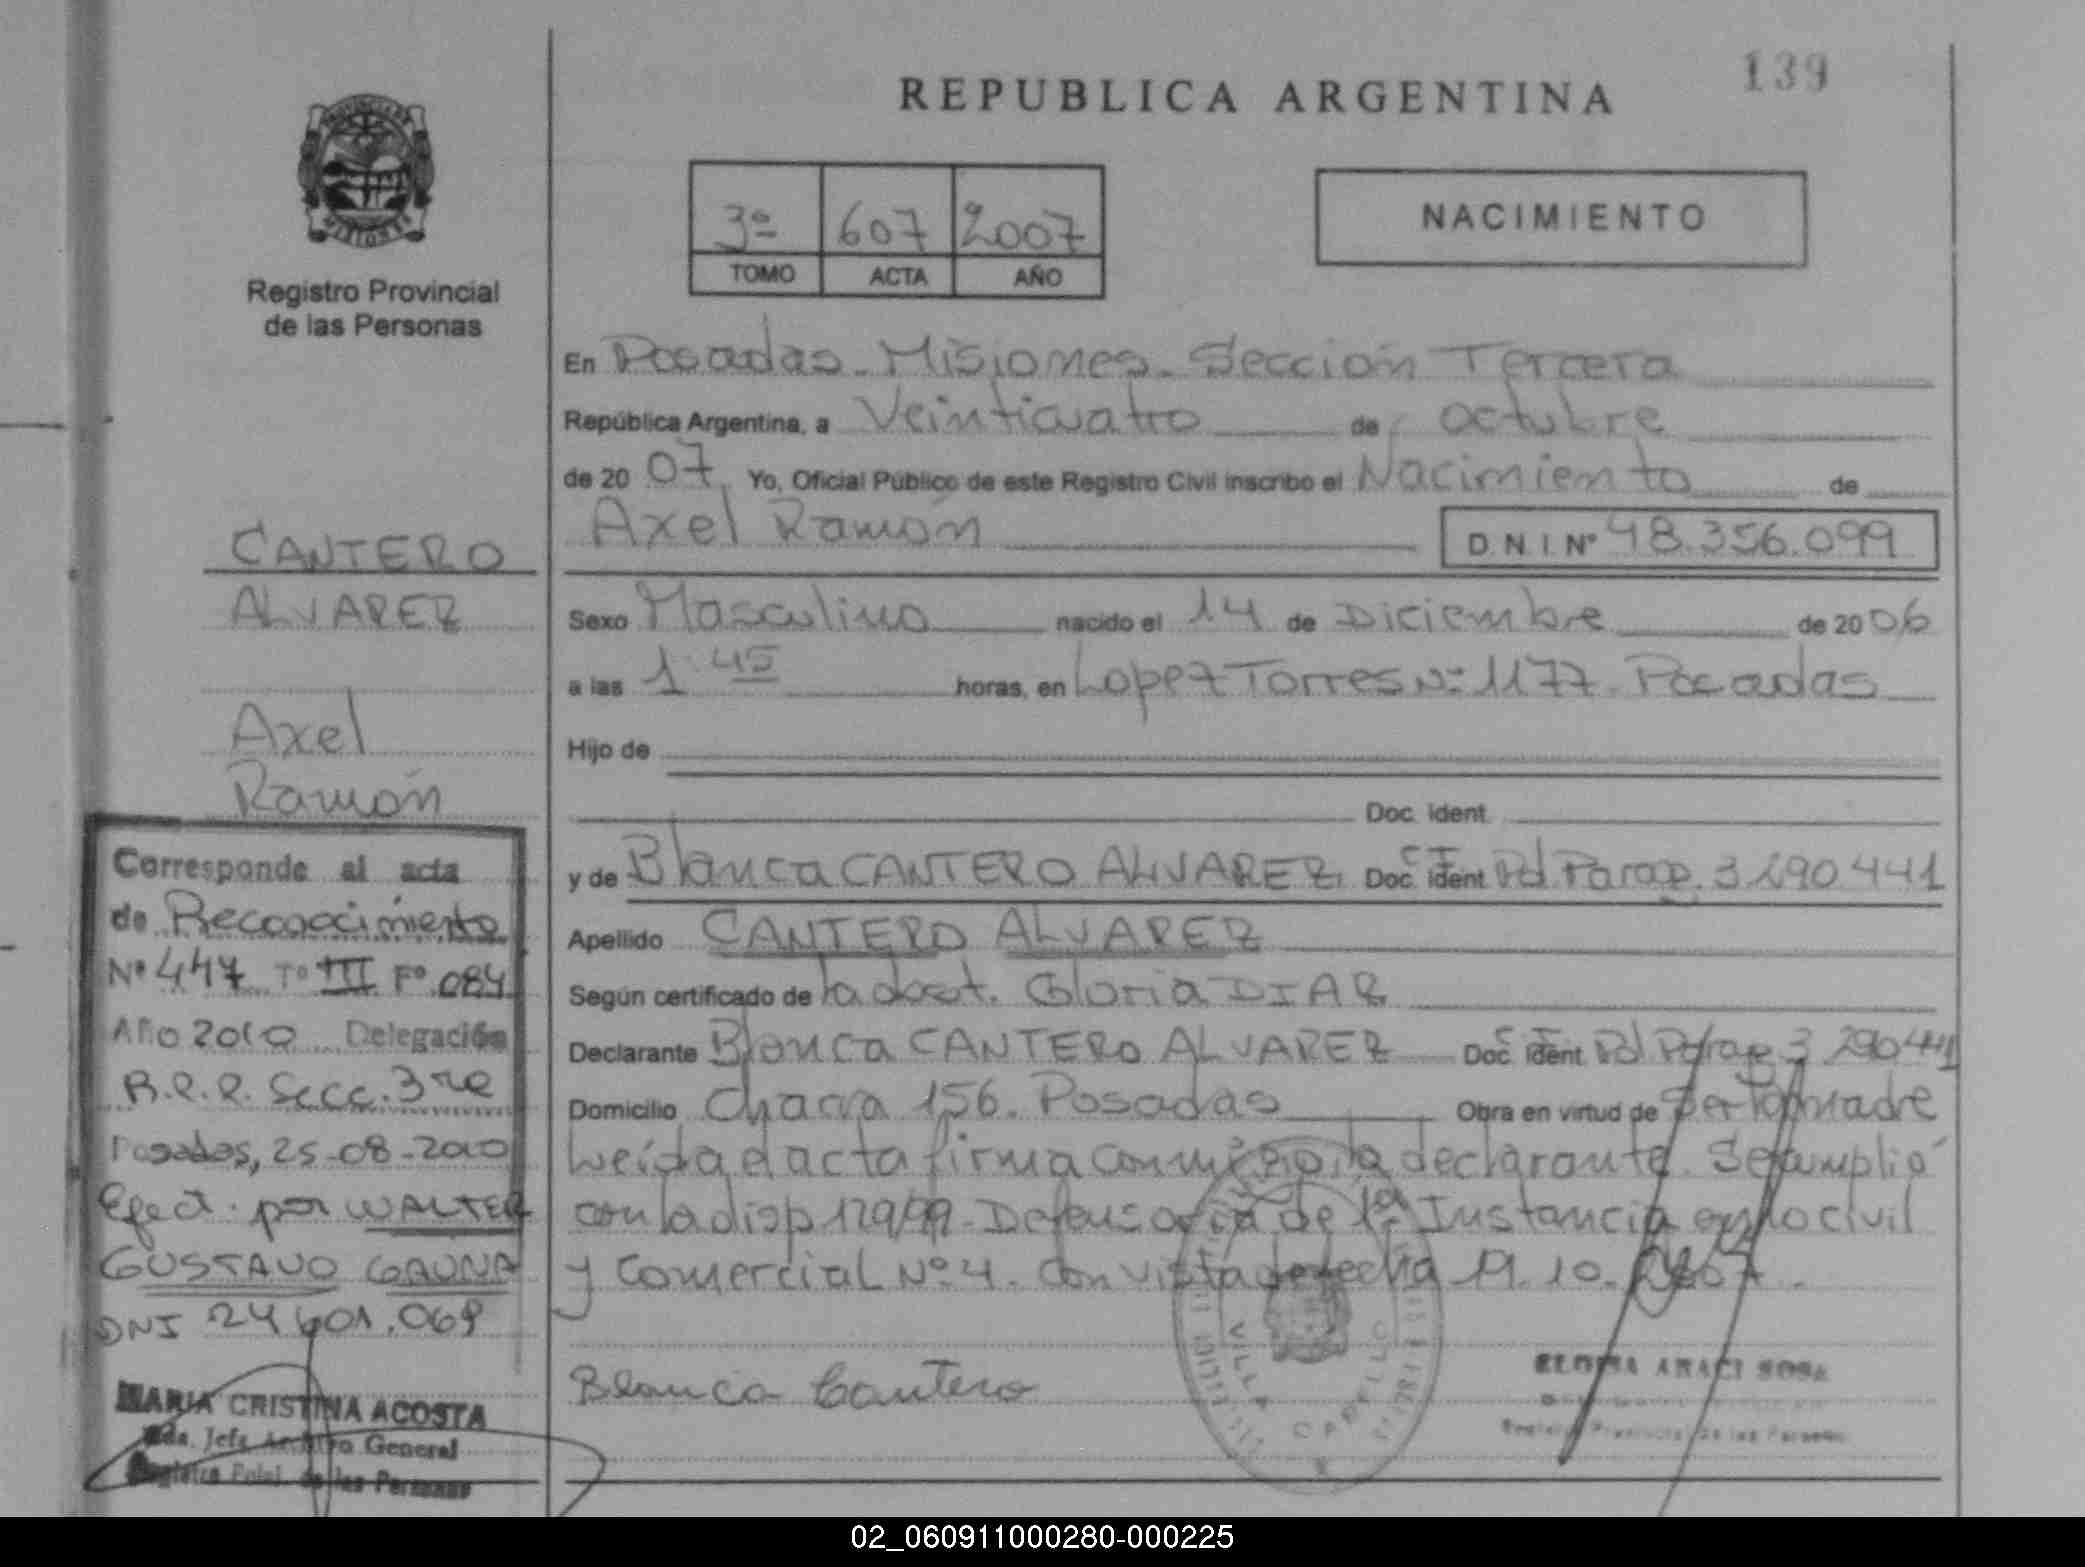 139
REPUBLICA ARGENTINA
PROVINCIA DE
MISIONES
Registro Provincial
de las Personas
3º 607 2007
TOMO ACTA AÑO
NACIMIENTO
En Posadas - Misiones - Sección Tercera
República Argentina, a Veinticuatro de octubre
de 2007 Yo, Oficial Público de este Registro Civil inscribo el Nacimiento de
Axel Ramón D.N.I. Nº 48.356.099
Sexo Masculino nacido el 14 de Diciembre de 2006
a las 1.45 horas, en Lopez Torres Nº 1177. Posadas
Hijo de
Doc. ident.
y de Blanca CANTERO ALVAREZ. Doc. ident C I Pol Parag. 3 290 441
Apellido CANTERO ALVAREZ
Según certificado de la doct. Gloria DIAZ
Declarante Blanca CANTERO ALVAREZ Doc. ident. C I Pol Parag 3 290441
Domicilio Chacra 156. Posadas Obra en virtud de Ser la madre
Leída el acta firma conmigo la declarante. Se amplió
con la disp 129/99 - Defensoria de 1ª Instancia en lo civil
y Comercial Nº 4. Con vista de fecha 19.10.2007.
Blanca Cantero
VILLA CABELLO
ARACI SOSA
Registro Provincial de las Personas
CANTERO
ALVAREZ
Axel
Ramón
Corresponde al acta
de Reconocimiento
Nº 447 Tº III Fº 084
Año 2010 Delegación
R.P.P. Secc. 3ra
Posadas, 25-08-2010
Efect. por WALTER
GUSTAVO GAUNA
DNI 24 601.069
MARIA CRISTINA ACOSTA
Jefa Archivo General
Registro Pcial. de las Personas
02_060911000280-000225